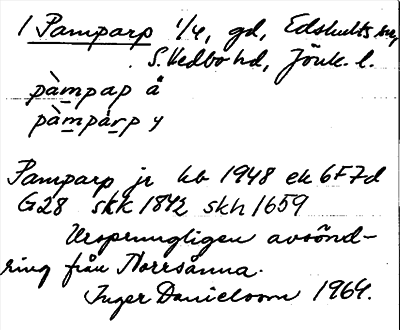 1 Pamparp 1/4, gd, Edshults sn,
S. Vedbo hd, Jönk. l.
pàmpap å
pàmpàrp y
Pamparp jr kb 1948 ek 6F7d
G28 skk 1842 skh 1659
Ursprungligen avsönd-
ring från Norrsånna.
Inger Danielsson 1964.